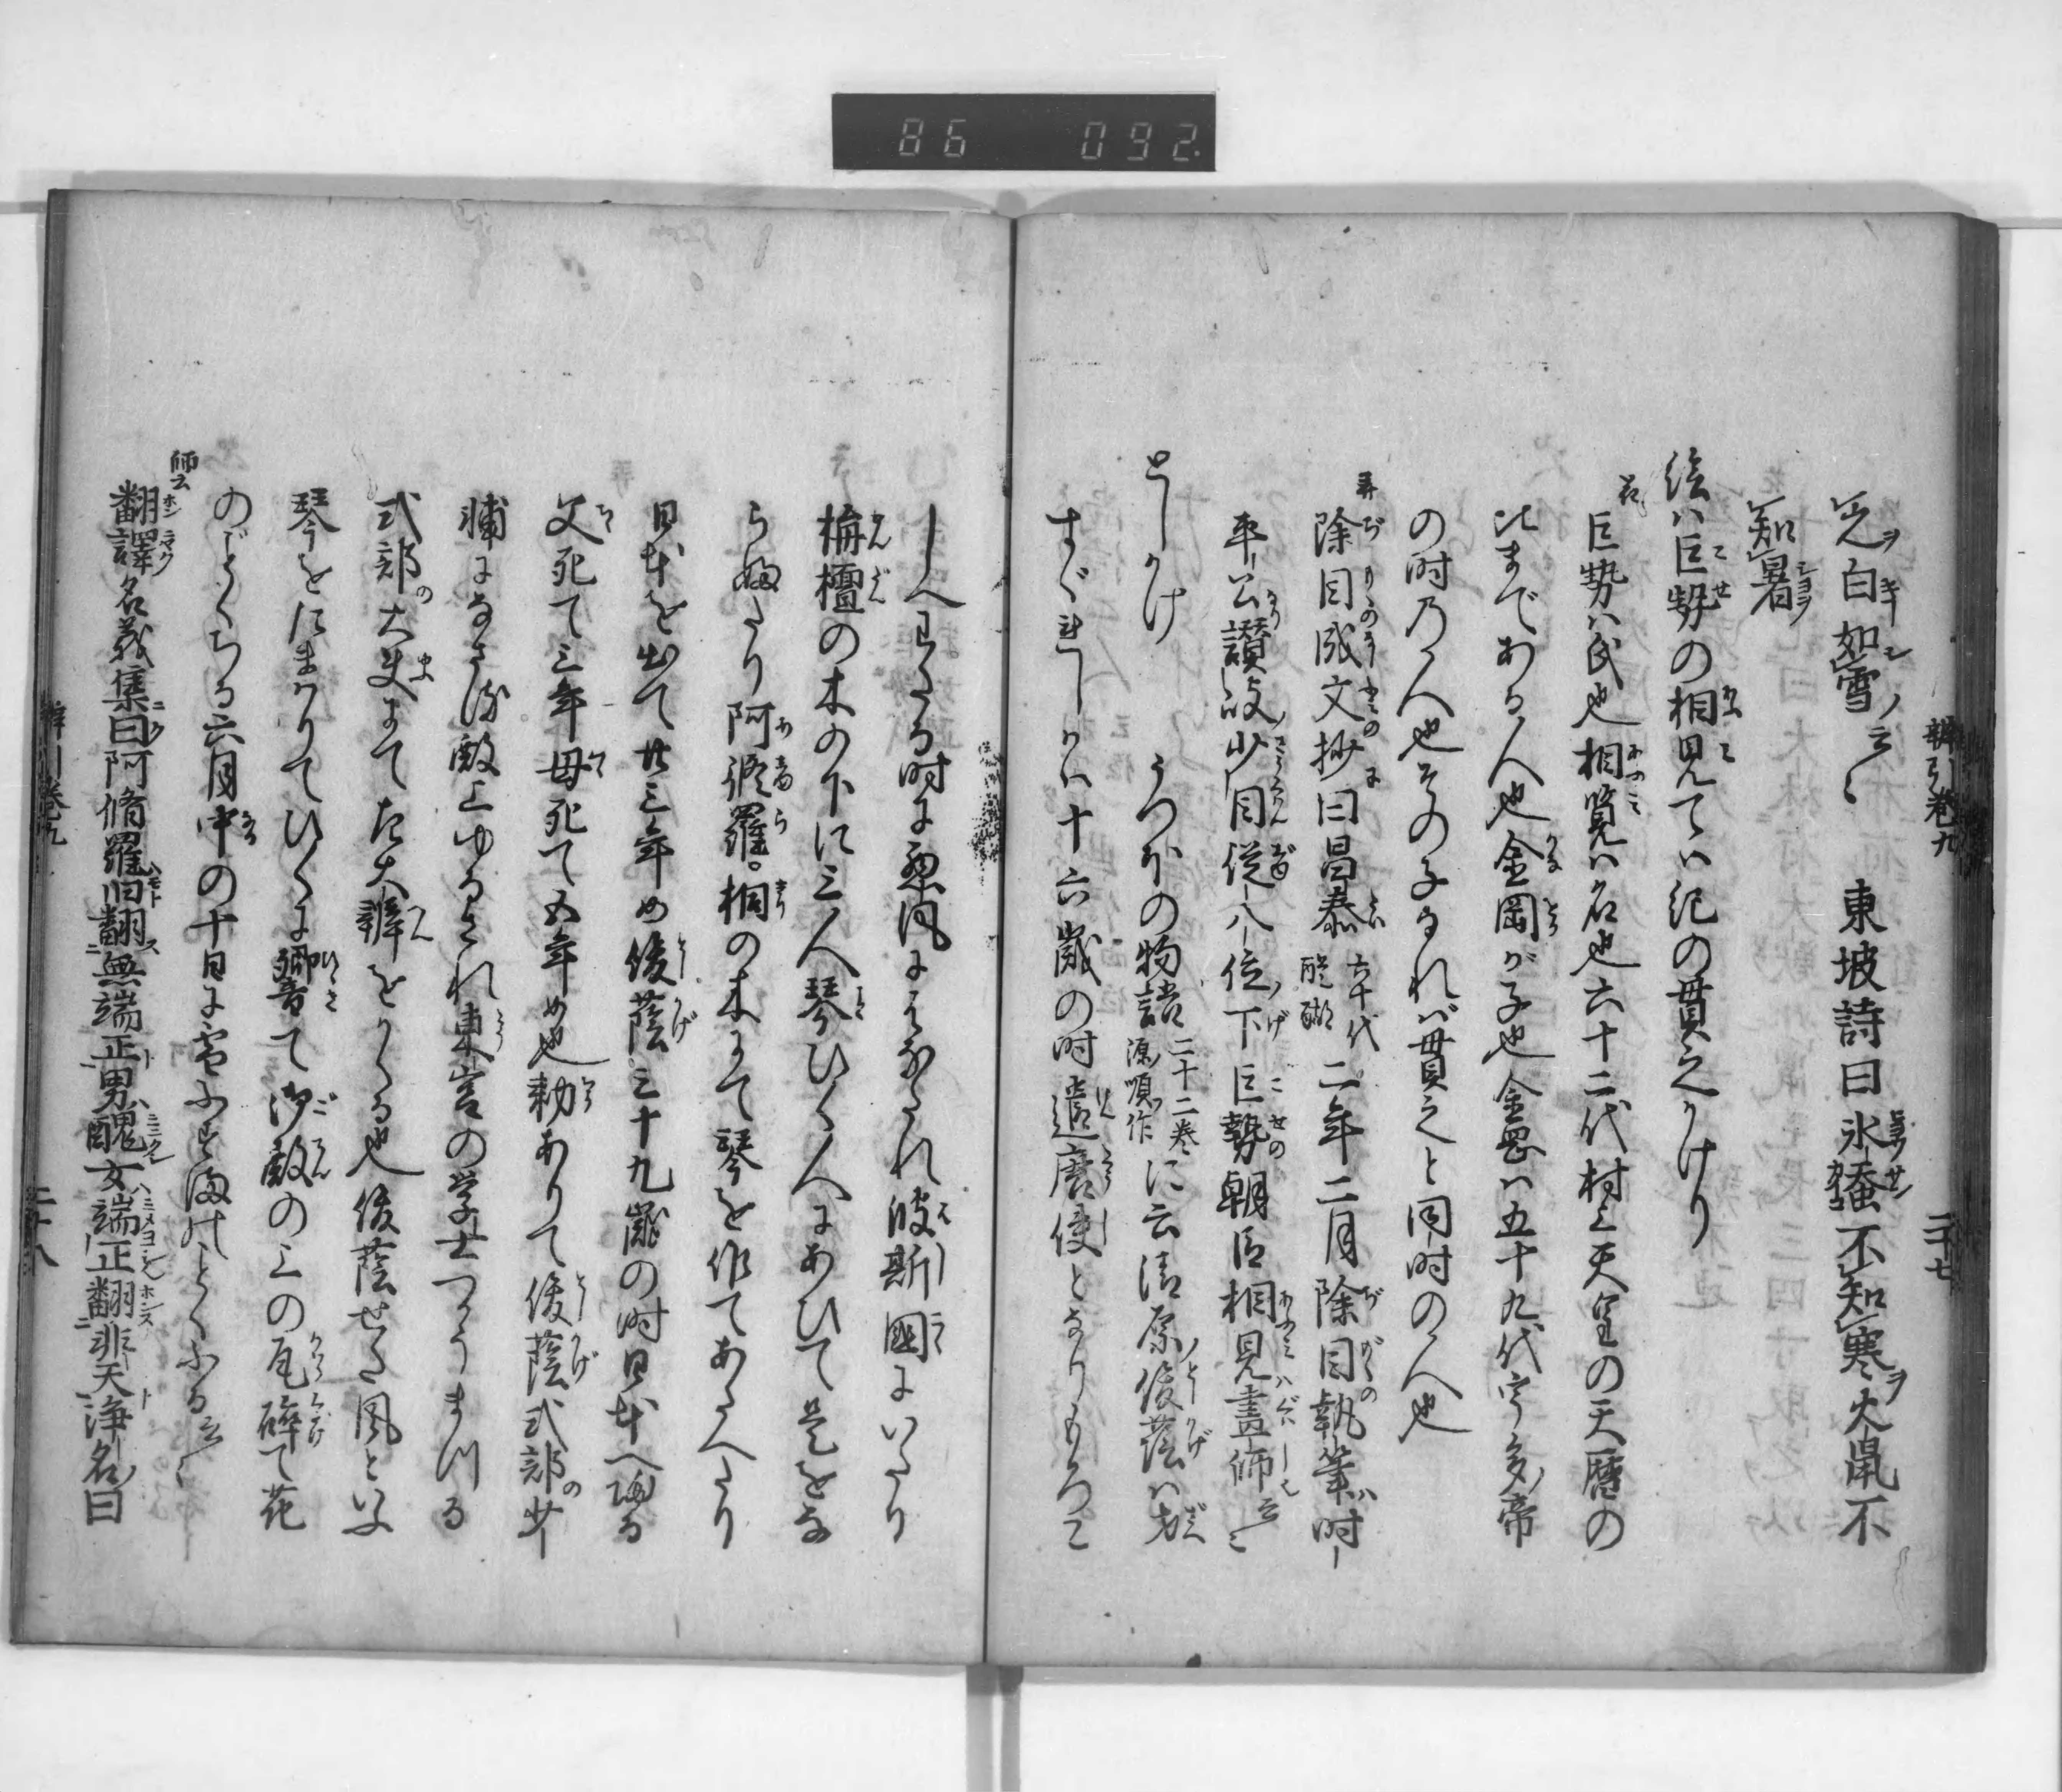 86 092
癖引巻九 二十七
光白如雪云〻 東坡詩曰氷蚕不知寒火鼠不
知暑
絵ハ巨勢の相見てハ紀の貫之かけり
花
巨勢ハ氏也相覧ハ名也六十二代村上天皇の天暦の
比まである人也金岡が子也金岡ハ五十九代宇多帝
の時乃人也その子なれバ貫之と同時の人也
弄
除目成文抄曰昌泰 六十代醍醐 二年二月除目執筆時
平公讃岐少目従八位下巨勢朝臣相見畫師云〻
としかけ うつほの物語 二十二巻源順作 に云清原俊蔭ハ才
すぐれしかハ十六歳の時遣唐使となりもろこ
しへわたる時に悪風にはなされ波斯國にいたり
栴檀の木の下に三人琴ひく人にあひて是をな
らゐたり阿修羅。桐の木にて琴を作てあたへたり
日本を出て廿三年め俊蔭三十九歳の時日本へ帰る
父死て三年母死て五年め也勅ありて俊蔭式部少
輔になされ殿上ゆるされ東宮の学士つかうまつる
式部大夫にて左大辨をかくる也俊蔭せた風といふ
琴を給まりてひくに響て御殿の上の瓦砕て花
のごとくちる六月中の十日に雪ふすまのことくふる云〻
師云
翻譯名義集曰阿脩羅旧翻無端正男醜女端正翻非天浄名曰
癖引巻九 二十八